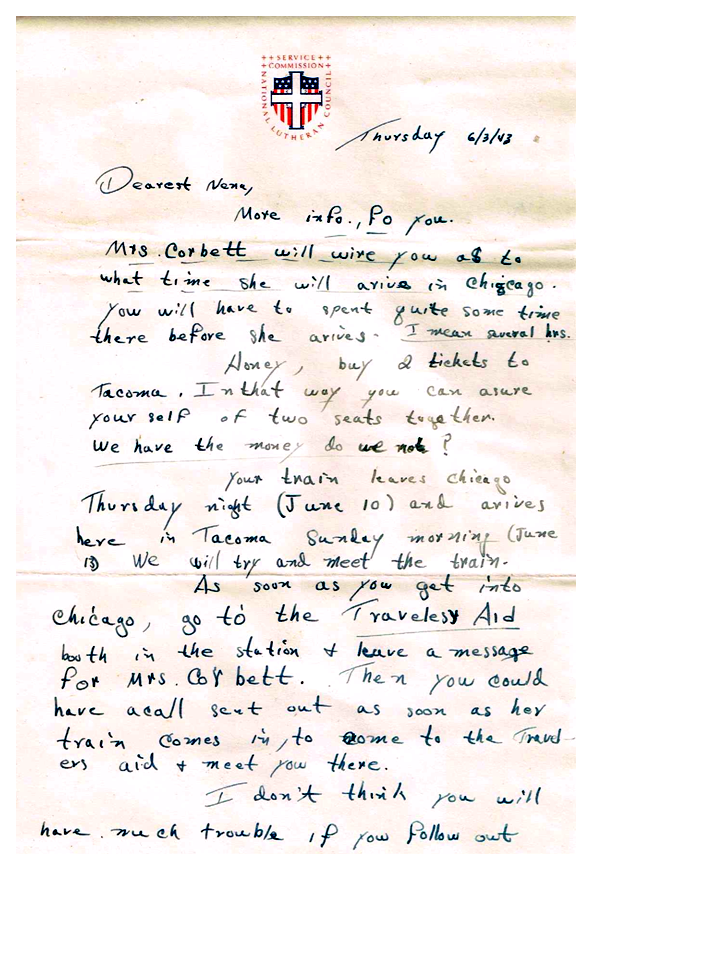 ++ SERVICE ++
+ COMMISSION +
NATIONAL LUTHERAN COUNCIL
Thursday 6/3/43
Dearest Nena,
More info., fo you.
Mrs. Corbett will wire you as to
what time she will arive in Chigcago.
You will have to spent quite some time
there before she arives. I mean several hrs.
Honey, buy 2 tickets to
Tacoma. In that way you can asure
your self of two seats together.
We have the money do we not?
Your train leaves chicago
Thursday night (June 10) and arives
here in Tacoma Sunday morning (June
13) We will try and meet the train.
As soon as you get into
Chicago, go to the Travelers Aid
booth in the station & leave a message
for Mrs. Corbett. Then you could
have a call sent out as soon as her
train comes in, to come to the Travel-
ers aid & meet you there.
I don't think you will
have much trouble if you follow out